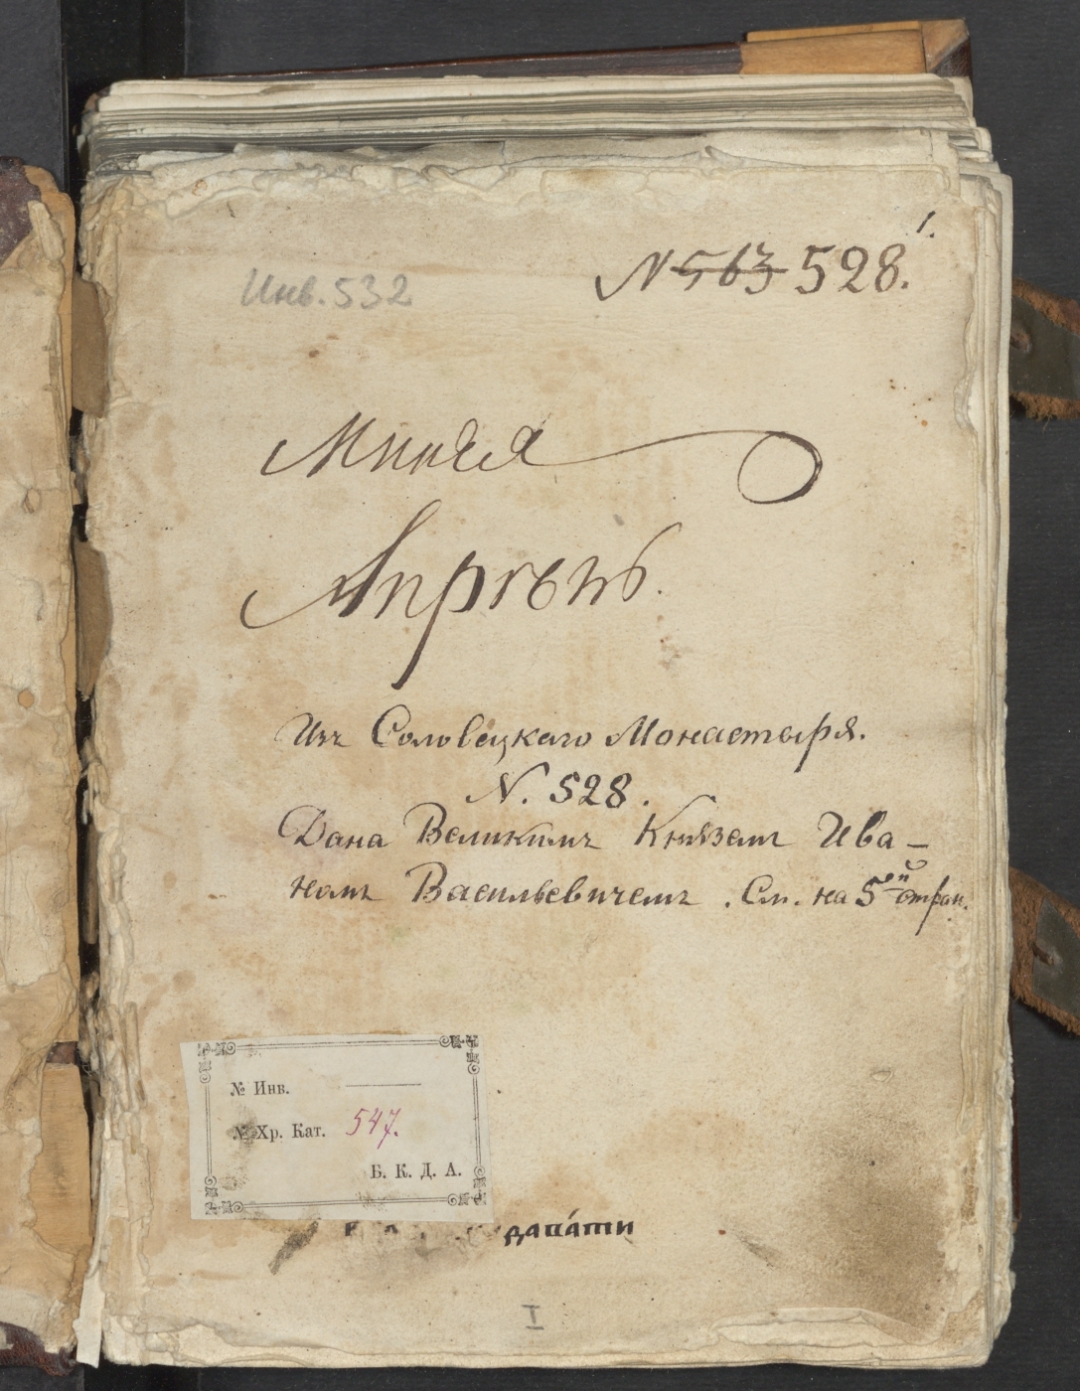 1.
N 563 528.
Инв. 532
Минѣя
Апрѣль.
Изъ Соловецкаго Монастыря.
N. 528.
Дана Великимъ Княземъ Ива-
номъ Васильевичемъ. См. на 5ой стран.
№ Инв.
№ Хр. Кат. 547.
Б. К. Д. А.
давáти
I